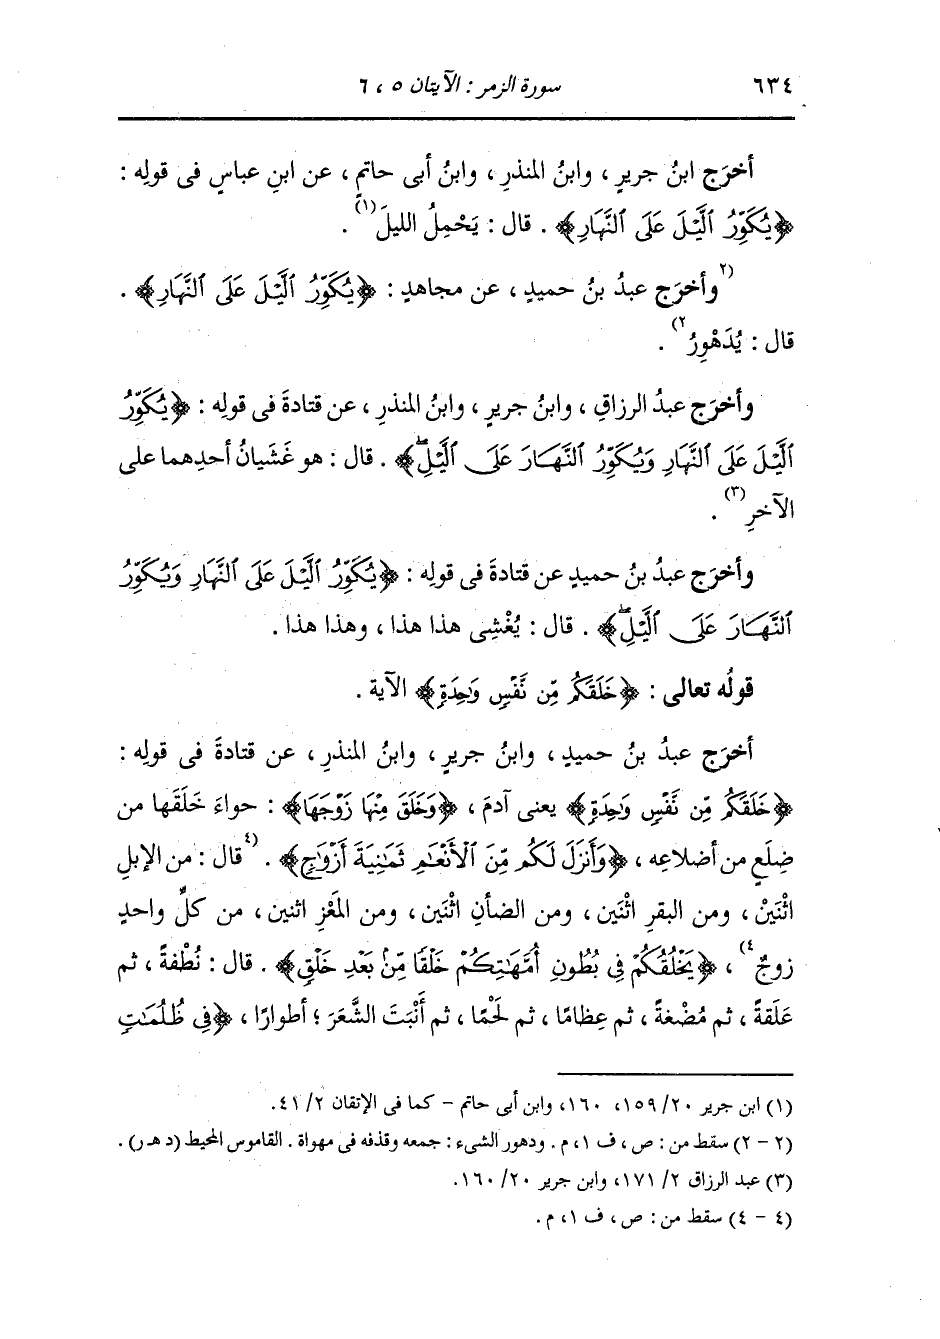 ٦٣٤ سورة الزمر : الآيتان ٥ ، ٦
أخرَج ابنُ جريرٍ ، وابنُ المنذرِ ، وابنُ أبى حاتمٍ ، عن ابنِ عباسٍ فى قولِه :
﴿يُكَوِّرُ ٱلَّيْلَ عَلَى ٱلنَّهَارِ﴾ . قال : يَحْمِلُ الليلَ(١) .
(٢وأخرَج عبدُ بنُ حميدٍ ، عن مجاهدٍ : ﴿يُكَوِّرُ ٱلَّيْلَ عَلَى ٱلنَّهَارِ﴾ .
قال : يُدَهْوِرُ٢) .
وأخرَج عبدُ الرزاقِ ، وابنُ جريرٍ ، وابنُ المنذرِ ، عن قتادةَ فى قولِه : ﴿يُكَوِّرُ
ٱلَّيْلَ عَلَى ٱلنَّهَارِ وَيُكَوِّرُ ٱلنَّهَارَ عَلَى ٱلَّيْلِۖ﴾ . قال : هو غَشَيانُ أحدِهما على
الآخرِ(٣) .
وأخرَج عبدُ بنُ حميدٍ عن قتادةَ فى قولِه : ﴿يُكَوِّرُ ٱلَّيْلَ عَلَى ٱلنَّهَارِ وَيُكَوِّرُ
ٱلنَّهَارَ عَلَى ٱلَّيْلِۖ﴾ . قال : يُغْشِى هذا هذا ، وهذا هذا .
قولُه تعالى : ﴿خَلَقَكُم مِّن نَّفْسٍ وَٰحِدَةٍ﴾ الآية .
أخرَج عبدُ بنُ حميدٍ ، وابنُ جريرٍ ، وابنُ المنذرِ ، عن قتادةَ فى قولِه :
﴿خَلَقَكُم مِّن نَّفْسٍ وَٰحِدَةٍ﴾ يعنى آدمَ ، ﴿وَخَلَقَ مِنْهَا زَوْجَهَا﴾ : حواءَ خَلَقَها من
ضِلَعٍ من أضلاعِه ، ﴿وَأَنزَلَ لَكُم مِّنَ ٱلْأَنْعَٰمِ ثَمَٰنِيَةَ أَزْوَٰجٍ﴾ . (٤قال : من الإبلِ
اثْنَيْنْ ، ومن البقرِ اثْنَين ، ومن الضأنِ اثْنَين ، ومن المَعْزِ اثنين ، من كلِّ واحدٍ
زوجٌ٤) ، ﴿يَخْلُقُكُمْ فِى بُطُونِ أُمَّهَٰتِكُمْ خَلْقًا مِّنۢ بَعْدِ خَلْقٍ﴾ . قال : نُطْفةً ، ثم
عَلَقةً ، ثم مُضْغةً ، ثم عِظامًا ، ثم لَحْمًا ، ثم أَنْبَتَ الشَّعَرَ ؛ أطوارًا ، ﴿فِى ظُلُمَٰتٍ
(١) ابن جرير ٢٠/ ١٥٩، ١٦٠، وابن أبى حاتم – كما فى الإتقان ٢/ ٤١.
(٢ – ٢) سقط من : ص ، ف ١، م . ودهور الشىء : جمعه وقذفه فى مهواة . القاموس المحيط (د هـ ر) .
(٣) عبد الرزاق ٢/ ١٧١، وابن جرير ٢٠/ ١٦٠.
(٤ – ٤) سقط من : ص ، ف ١، م .